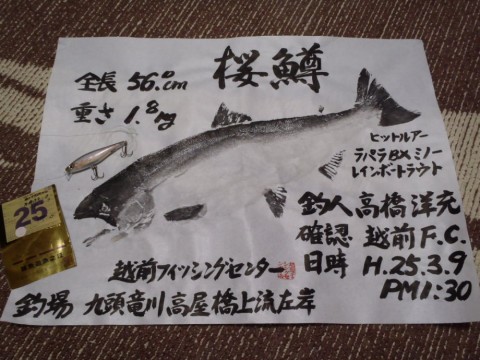 桜鱒
全長 56.0cm
重さ 1.8kg
ヒットルアー
ラパラBXミノー
レインボートラウト
釣人 高橋洋充
確認 越前F.C.
日時 H.25.3.9
PM1:30
越前フィッシングセンター
釣場 九頭竜川高屋橋上流左岸
25